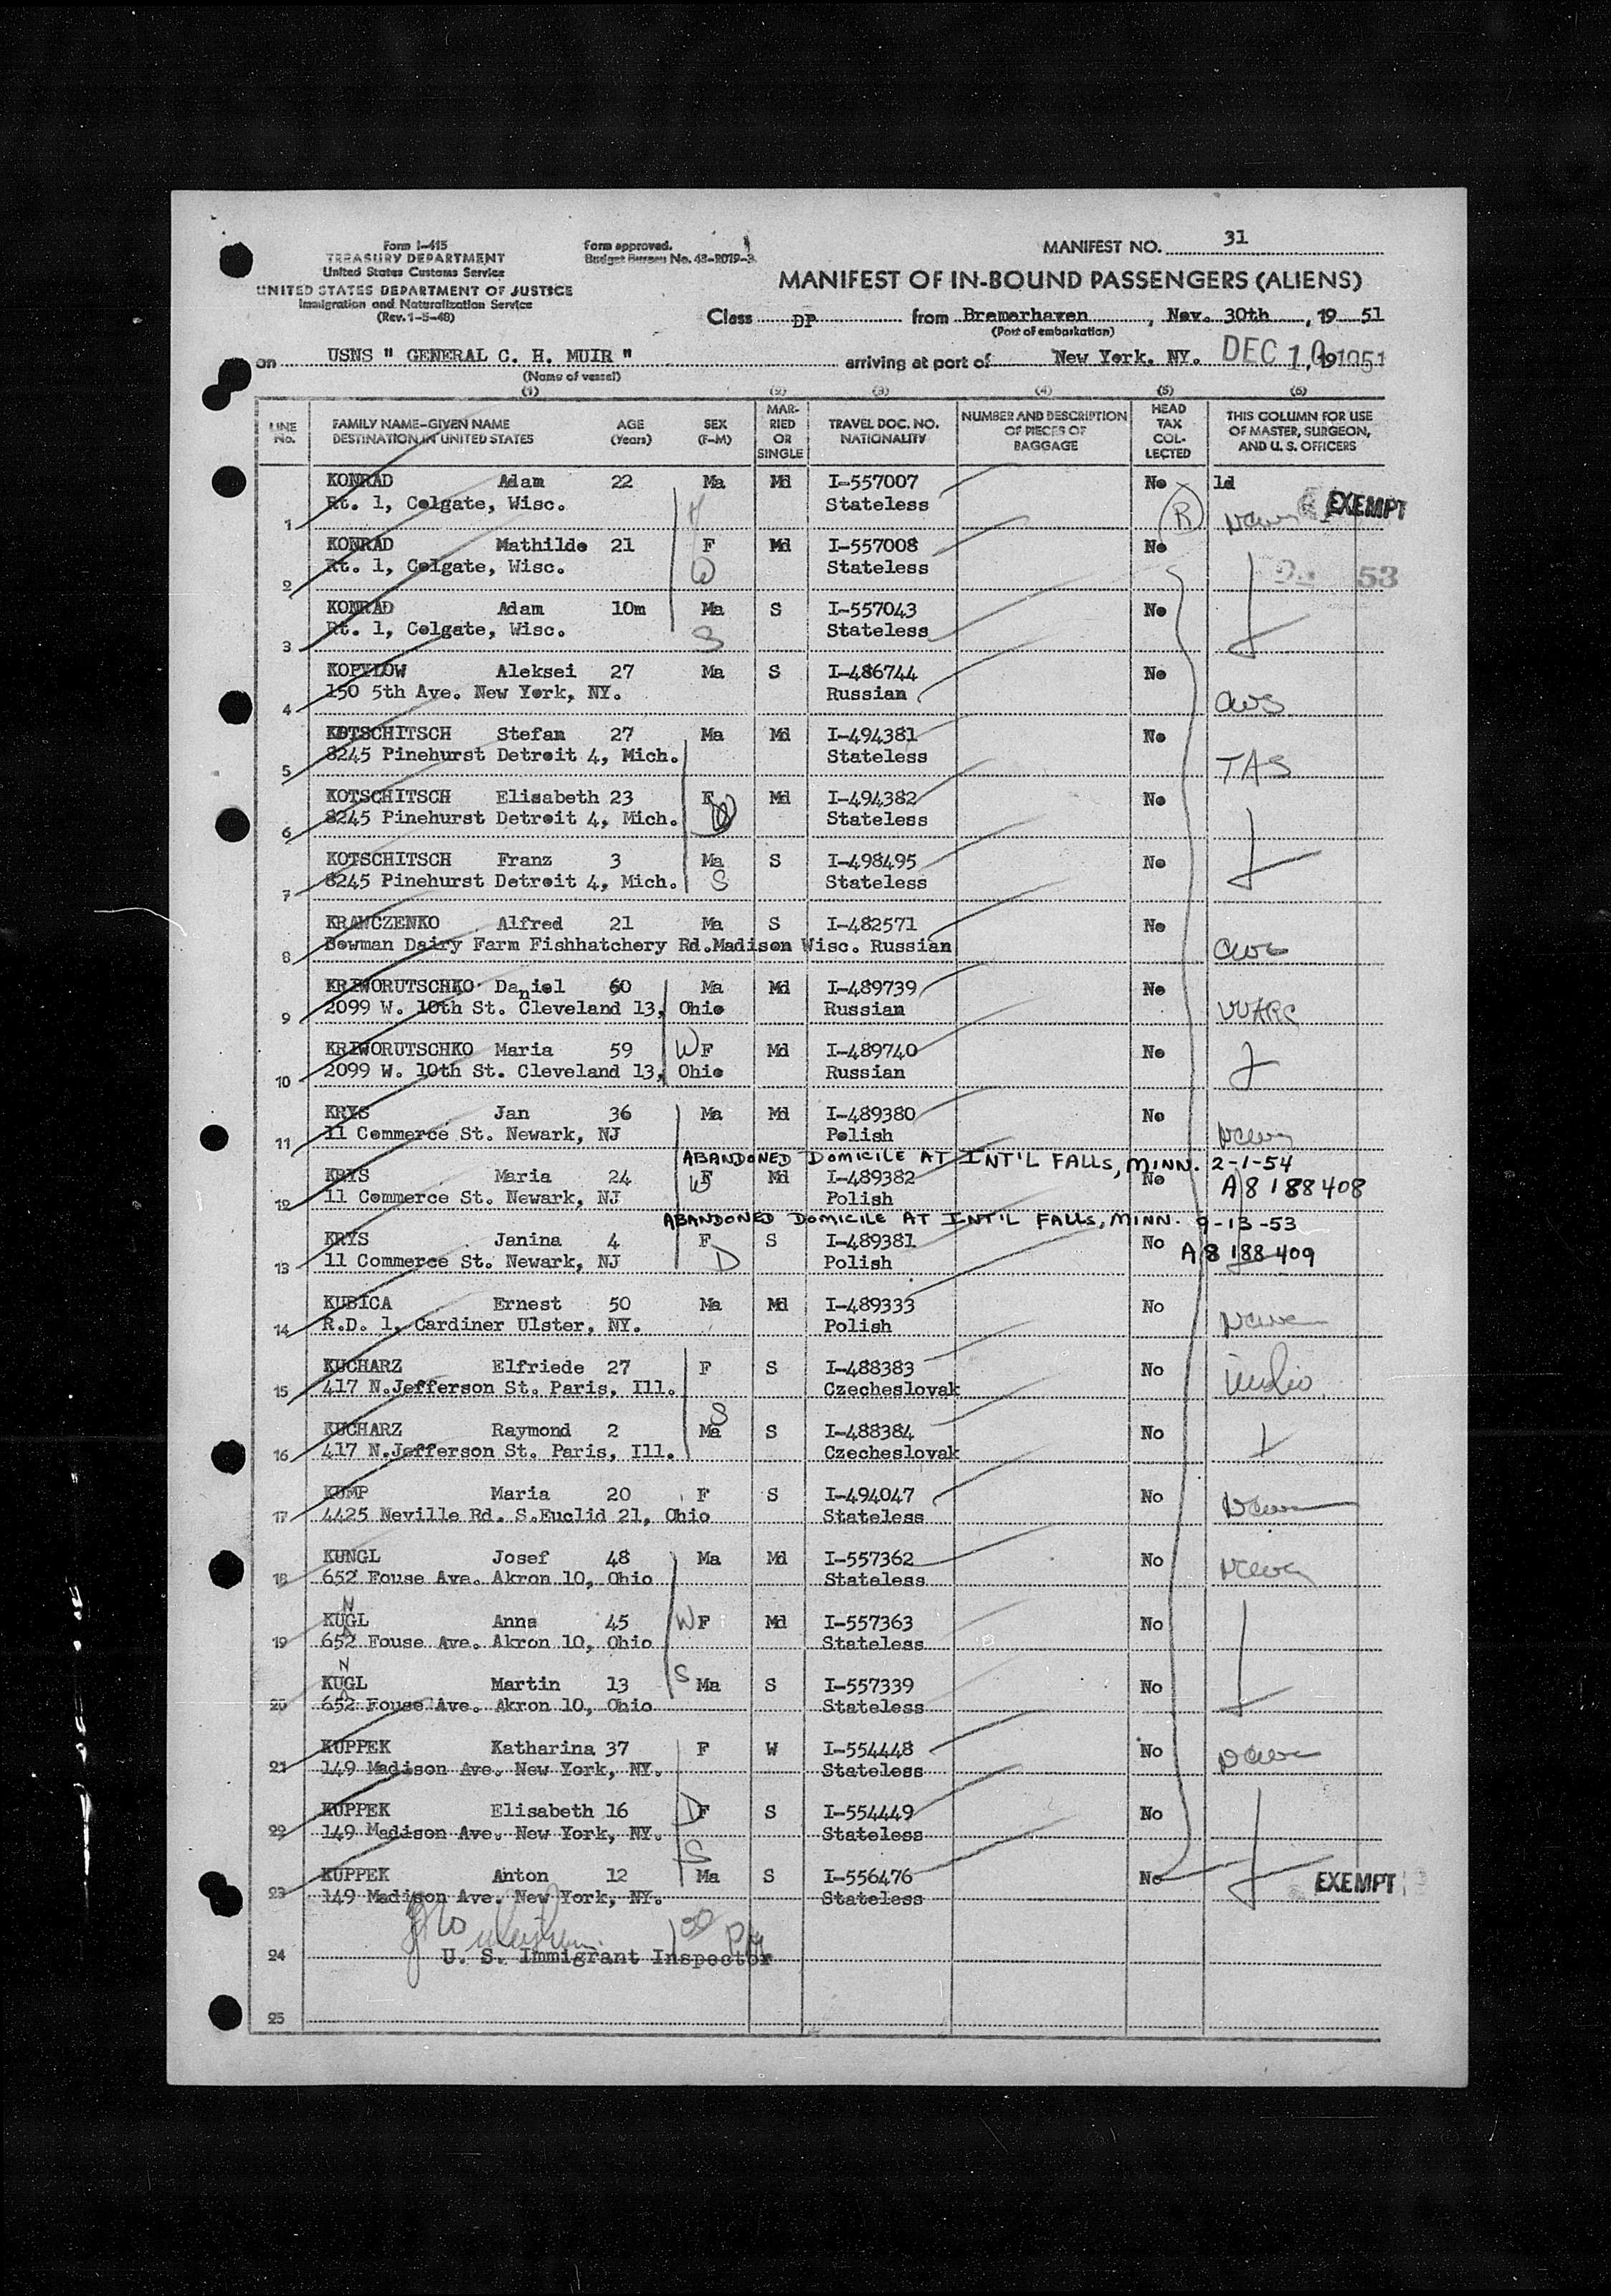 Form I-415
TREASURY DEPARTMENT
United States Customs Service
UNITED STATES DEPARTMENT OF JUSTICE
Immigration and Naturalization Service
(Rev. 1-5-48)
Form approved.
Budget Bureau No. 43-R079-3.
MANIFEST NO. 31
MANIFEST OF IN-BOUND PASSENGERS (ALIENS)
Class DP from Bremerhaven, Nov. 30th, 19 51
(Port of embarkation)
on USNS " GENERAL C. H. MUIR " arriving at port of New York, NY. DEC 10 1951, 19
(Name of vessel)
(1) (2) (3) (4) (5) (6)
LINE No. FAMILY NAME-GIVEN NAME DESTINATION IN UNITED STATES AGE (Years) SEX (F-M) MARRIED OR SINGLE TRAVEL DOC. NO. NATIONALITY NUMBER AND DESCRIPTION OF PIECES OF BAGGAGE HEAD TAX COLLECTED THIS COLUMN FOR USE OF MASTER, SURGEON, AND U. S. OFFICERS
KONRAD Adam 22 Ma Md I-557007 No 1d
1 Rt. 1, Colgate, Wisc. Stateless R EXEMPT
KONRAD Mathilde 21 F Md I-557008 No
2 Rt. 1, Colgate, Wisc. W Stateless 53
KONRAD Adam 10m Ma S I-557043 No
3 Rt. 1, Colgate, Wisc. S Stateless
KOPYLOW Aleksei 27 Ma S I-486744 No
4 150 5th Ave. New York, NY. Russian CWS
KOTSCHITSCH Stefan 27 Ma Md I-494381 No
5 8245 Pinehurst Detroit 4, Mich. Stateless TAS
KOTSCHITSCH Elisabeth 23 F Md I-494382 No
6 8245 Pinehurst Detroit 4, Mich. W Stateless
KOTSCHITSCH Franz 3 Ma S I-498495 No
7 8245 Pinehurst Detroit 4, Mich. S Stateless
KRAWCZENKO Alfred 21 Ma S I-482571 No
8 Bowman Dairy Farm Fishhatchery Rd.Madison Wisc. Russian CWS
KRIWORUTSCHKO Daniel 60 Ma Md I-489739 No
9 2099 W. 10th St. Cleveland 13, Ohio Russian
KRIWORUTSCHKO Maria 59 W F Md I-489740 No
10 2099 W. 10th St. Cleveland 13, Ohio Russian
KRYS Jan 36 Ma Md I-489380 No
11 11 Commerce St. Newark, NJ Polish
ABANDONED DOMICILE AT INT'L FALLS, MINN. 2-1-54
KRYS Maria 24 W F Md I-489382 No A8 188 408
12 11 Commerce St. Newark, NJ Polish
ABANDONED DOMICILE AT INT'L FALLS, MINN. 9-13-53
KRYS Janina 4 F S I-489381 No A8 188 409
13 11 Commerce St. Newark, NJ D Polish
KUBICA Ernest 50 Ma Md I-489333 No
14 R.D. 1, Cardiner Ulster, NY. Polish
KUCHARZ Elfriede 27 F S I-488383 No
15 417 N.Jefferson St. Paris, Ill. Czecheslovak
KUCHARZ Raymond 2 S Ma S I-488384 No
16 417 N.Jefferson St. Paris, Ill. Czecheslovak
KUMP Maria 20 F S I-494047 No
17 4425 Neville Rd. S.Euclid 21, Ohio Stateless
KUNGL Josef 48 Ma Md I-557362 No
18 652 Fouse Ave. Akron 10, Ohio Stateless
N
KUGL Anna 45 W F Md I-557363 No
19 652 Fouse Ave. Akron 10, Ohio Stateless
N
KUGL Martin 13 S Ma S I-557339 No
20 652 Fouse Ave. Akron 10, Ohio Stateless
KUPPEK Katharina 37 F W I-554448 No
21 149 Madison Ave. New York, NY. Stateless
KUPPEK Elisabeth 16 D F S I-554449 No
22 149 Madison Ave. New York, NY. Stateless
S
KUPPEK Anton 12 Ma S I-556476 No EXEMPT
23 149 Madison Ave. New York, NY. Stateless
24 U. S. Immigrant Inspector
25